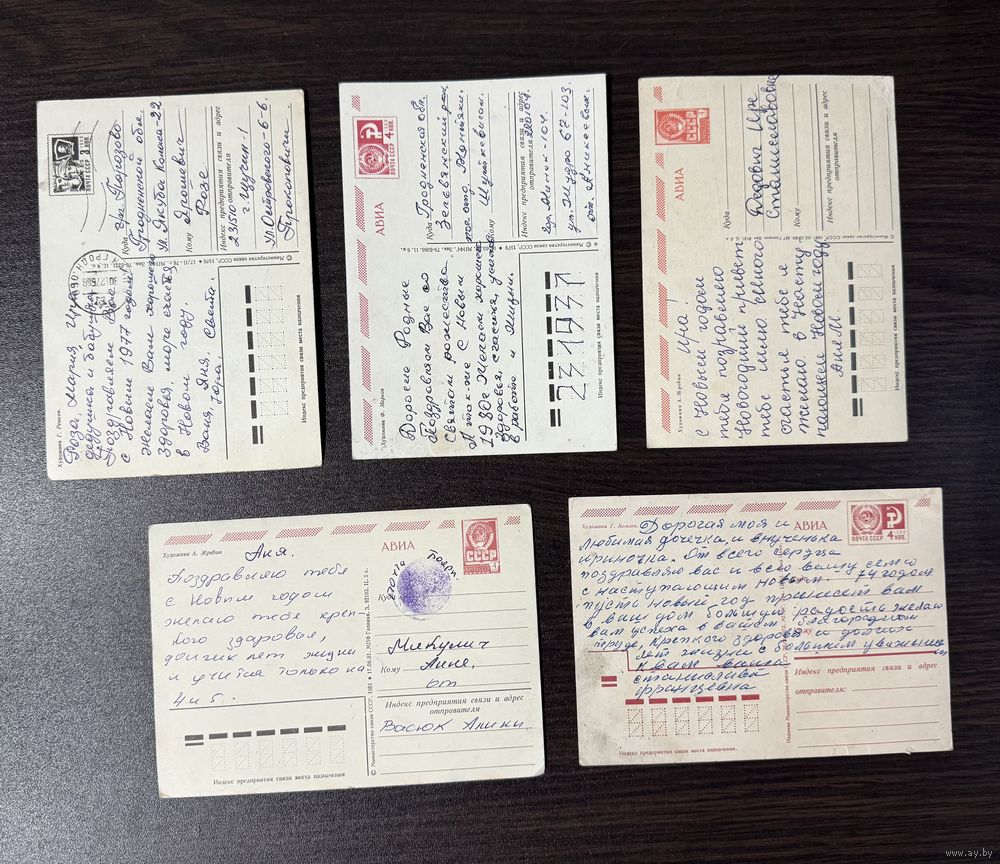 Художник Г. Ренков.
Роза, Мария, Ира
дедушка и бабушка
Поздравляем Вас
с Новым 1977 годом
желаем Вам хорошего
здоровья, море счастья
в Новом году
Ваня, Яня, Света
ПОЧТА СССР
Куда
Гродненской обл.
ул. Якуба Коласа-22
Кому
Ярошевич
Розе
Индекс предприятия связи и адрес
отправителя
231510 г. Щучин-1
ул. Островского-6-6.
Индекс предприятия связи места назначения
Художник Ф. Марков
АВИА
ПОЧТА СССР 4 КОП.
Дорогие Родные
Поздравляем Вас со
Святым рожеством
А так-же С Новым
1980г Желаем хорошего
здоровья, счастья, успехов
в работе и жизни.
Куда Гродненская обл.
Зельвенский рай
Кому
Индекс предприятия связи и адрес
отправителя
231937
Индекс предприятия связи места назначения
Художник А. Жребин
АВИА
СССР
Ира!
с Новым годом
тебя поздравляю
Новогодний привет
тебе шлю Много
счастья тебе я
желаю в Наступ
пающем Новом году
Аня М.
Куда
Дядович Ире
Кому Станиславовне
Индекс предприятия связи и адрес
отправителя
Индекс предприятия связи места назначения
Художник А. Жребин
Аня.
АВИА
СССР
Поздравляю тебя
с Новым годом
желаю тебе креп-
кого здоровья,
долгих лет жизни
и учится только на
4 и 5.
Куда почта
Микулич
Кому Анне,
от
Индекс предприятия связи и адрес
отправителя
Васюк Алики.
© Министерство связи СССР, 1981
Индекс предприятия связи места назначения
АВИА
ПОЧТА СССР 4 КОП.
Дорогая моя и
любимая дочечка, и внученька
ириночка. От всего сердца
поздравляю вас и всю вашу семью
с наступающим Новым 74 годом
пусть новый год принесет вам
в ваш дом большую радость желаю
вам успеха в вашем благородном
труде, крепкого здоровья и долгих
лет жизни с большим уважением
к вам ваша
станислава
францевна
Кому
Индекс предприятия связи и адрес
отправителя:
Индекс предприятия связи места назначения.
www.ay.by